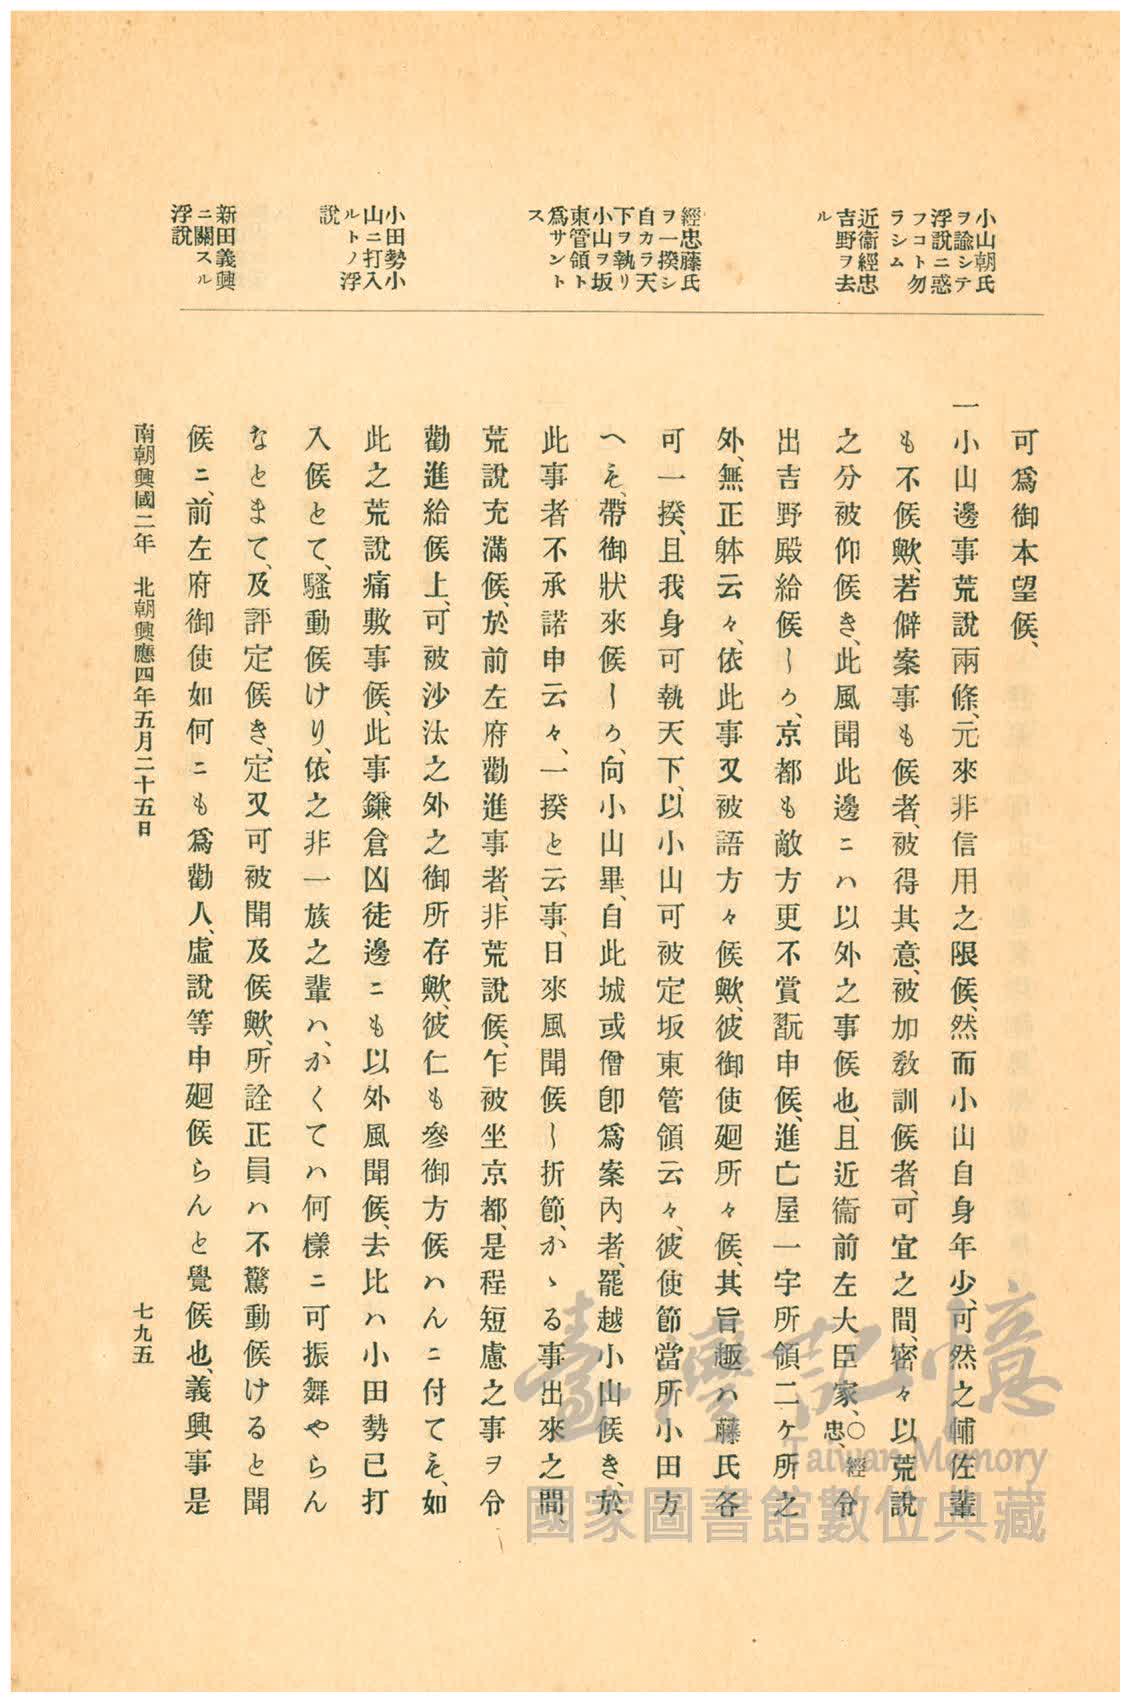 小山朝氏
ヲ諭シテ
浮說ニ惑
フコト勿
ラシム
近衞經忠
吉野ヲ去
ル
經忠藤氏
ヲ一揆シ
自カラ天
下ヲ執リ
小山ヲ坂
東管領ト
爲サント
ス
小田勢小
山ニ打入
ルトノ浮
說
新田義興
ニ關スル
浮說
可爲御本望候、
一小山邊事荒說兩條、元來非信用之限候、然而小山自身年少、可然之輔佐輩
も不候歟、若僻案事も候者、被得其意、被加敎訓候者、可宜之間、密々以荒說
之分被仰候き、此風聞此邊ニハ以外之事候也、且近衞前左大臣家、〇經忠、令
出吉野殿給候しか、京都も敵方更不賞翫申候、進亡屋一宇所領二ケ所之
外、無正躰云々、依此事又被語方々候歟、彼御使廻所々候、其旨趣ハ藤氏各
可一揆、且我身可執天下、以小山可被定坂東管領云々、彼使節當所小田方
へも、帶御狀來候しか、向小山畢、自此城或僧卽爲案內者、罷越小山候き、於
此事者不承諾申云々、一揆と云事、日來風聞候し折節、かゝる事出來之間、
荒說充滿候、於前左府勸進事者、非荒說候、乍被坐京都、是程短慮之事ヲ令
勸進給候上、可被沙汰之外之御所存歟、彼仁も參御方候ハんニ付ても、如
此之荒說痛敷事候、此事鎌倉凶徒邊ニも以外風聞候、去比ハ小田勢已打
入候とて、騷動候けり、依之非一族之輩ハ、かくてハ何樣ニ可振舞やらん
なとまて、及評定候き、定又可被聞及候歟、所詮正員ハ不驚動候けると聞
候ニ、前左府御使如何ニも爲勸人、虛說等申廻候らんと覺候也、義興事是
南朝興國二年　北朝興應四年五月二十五日
七九五
臺灣記憶
Taiwan Memory
國家圖書館數位典藏